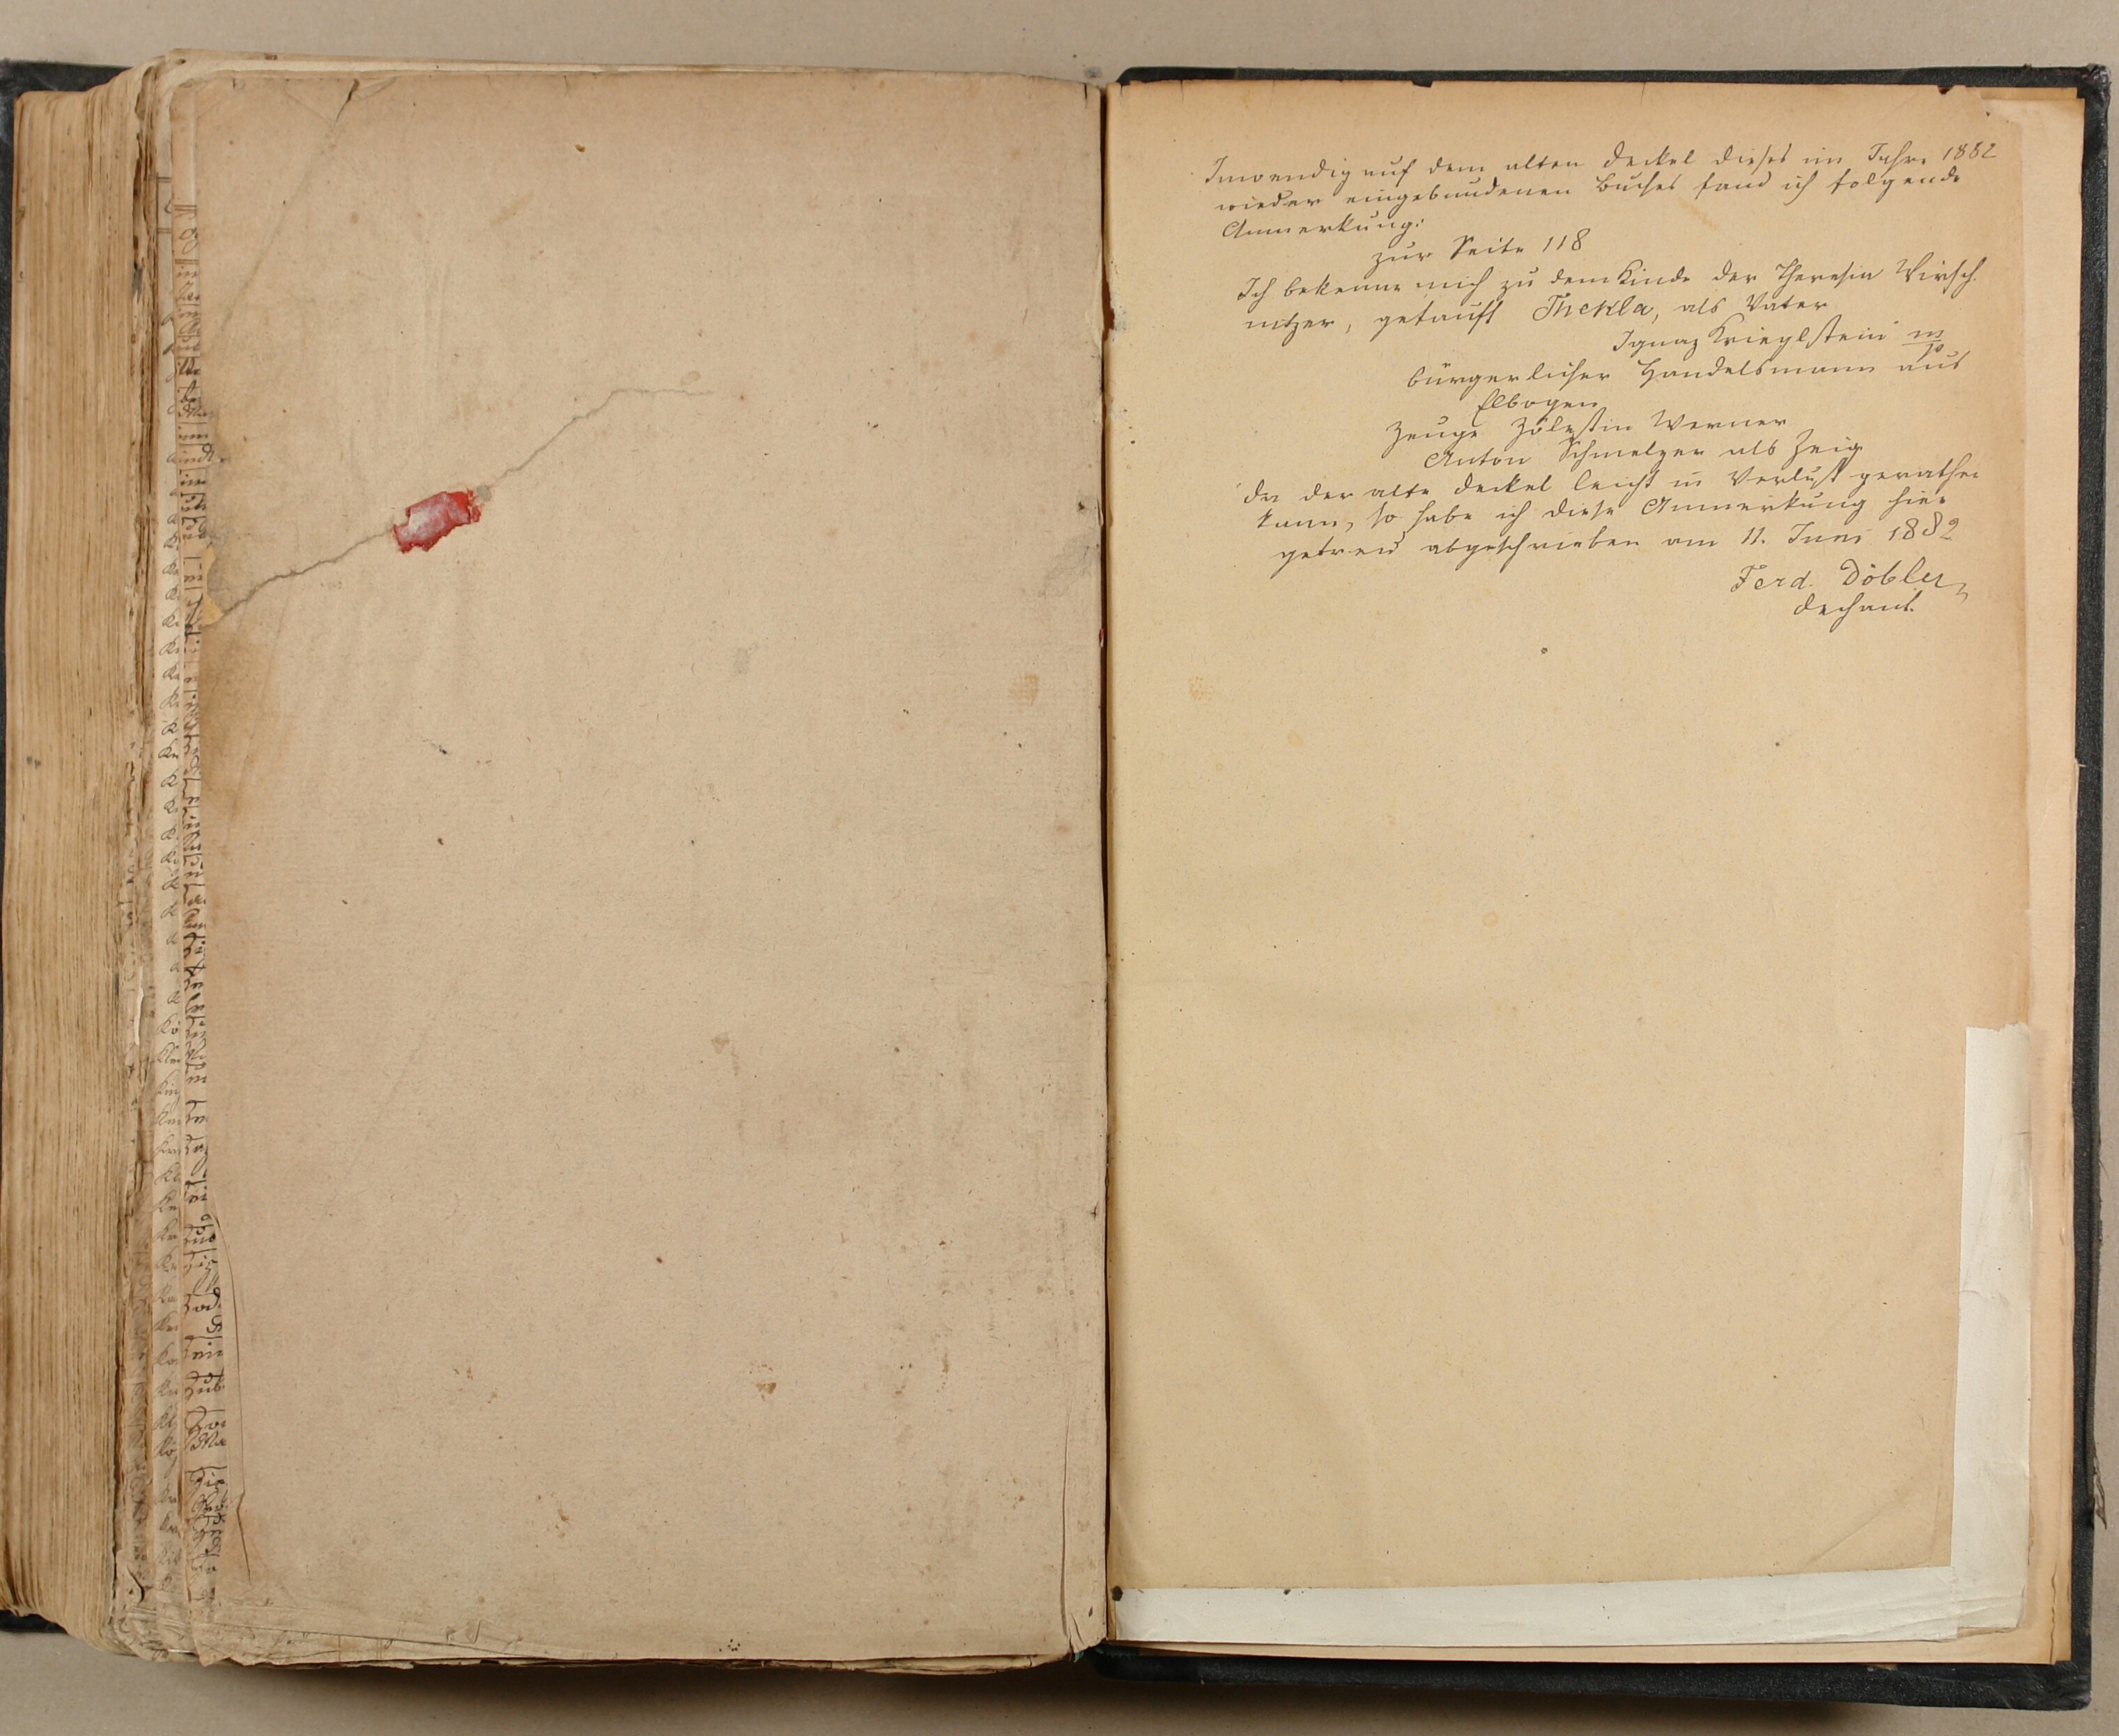 Inwendig auf dem alten Deckel dieses im Jahre 1882
wieder eingebundenen Buches fand ich folgende
Anmerkung:
zur Seite 118
Ich bekenne mich zu dem Kinde der Theresia Wirsch-
nitzer, getauft Thekla, als Vater
Ignaz Krieglstein m/p
bürgerlicher Handelsmann aus
Elbogen
Zeuge Zölestin Werner
Anton Schmelzer als Zeig
Da der alte Deckel leicht in Verlust gerathen
kann, so habe ich diese Anmerkung hier
getreu abgeschrieben am 11. Juni 1882
Ferd. Döbler,
Dechant.